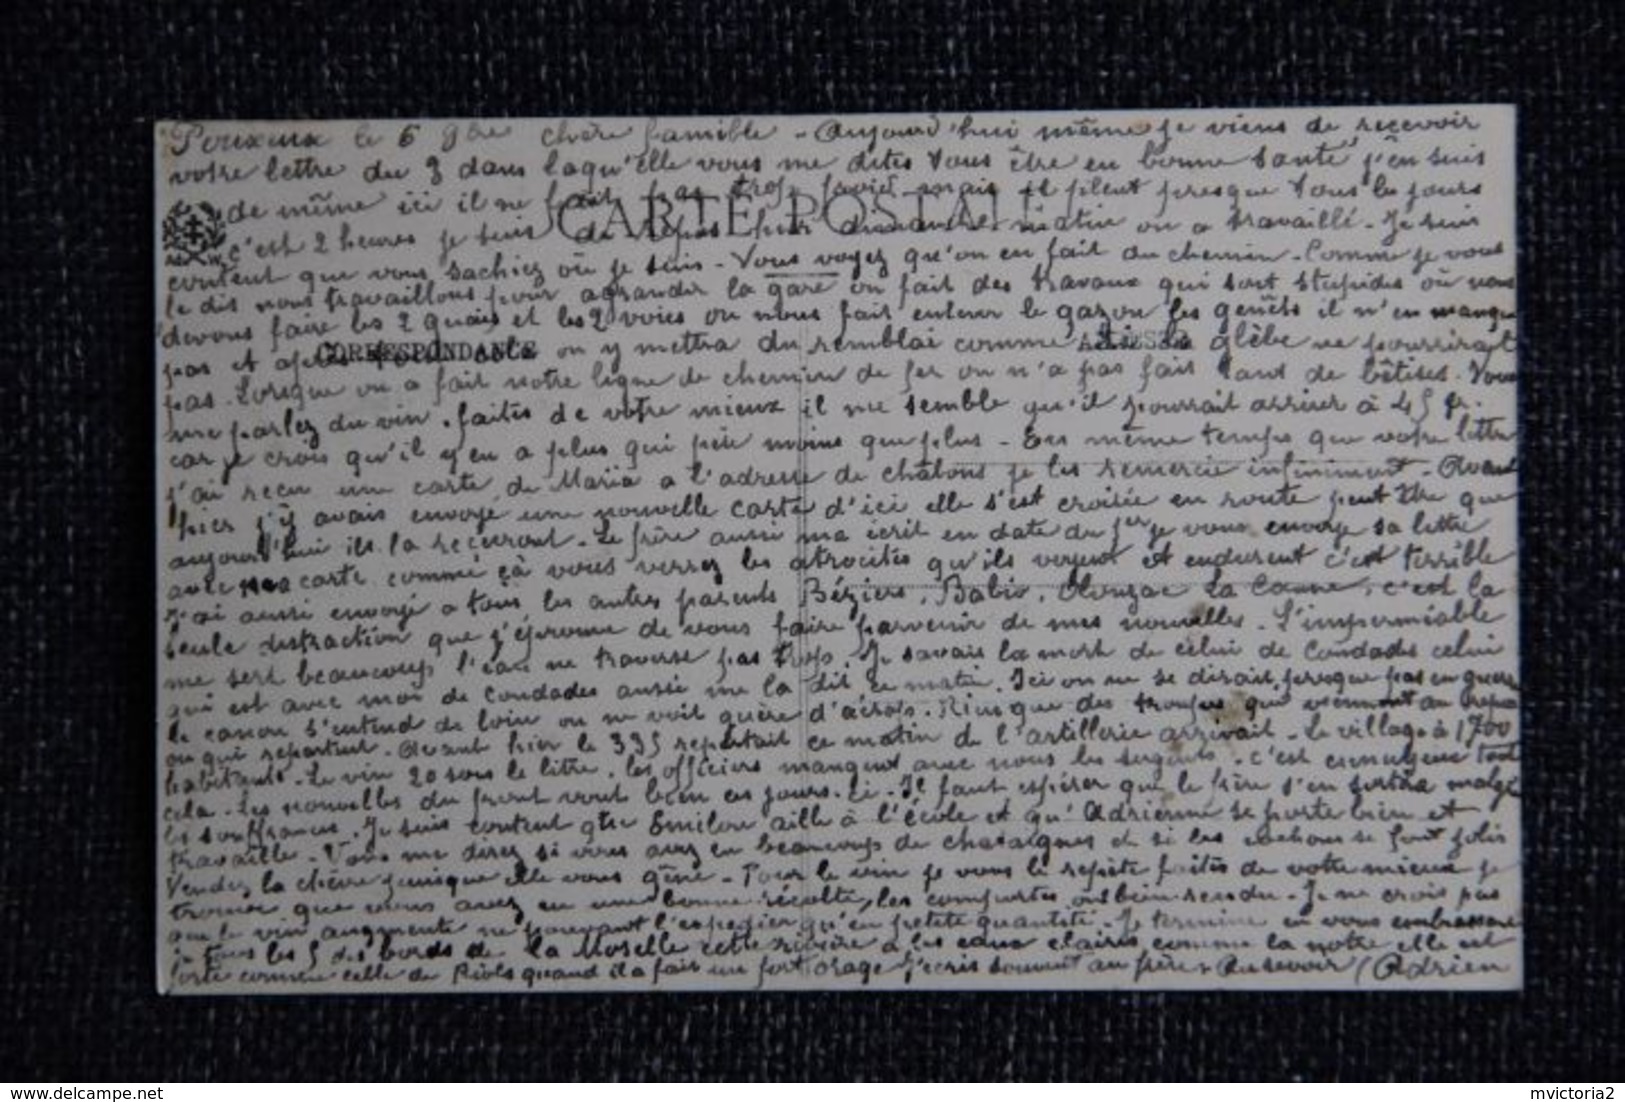 Pouxeux le 6 9bre chère famille - Aujourd'hui même je viens de recevoir
votre lettre du 3 dans laqu'elle vous me dites tous être en bonne santé, j'en suis
de même ici il ne fait pas trop froid mais il pleut presque tous les jours
CARTE POSTALE
c'est 2 heures je suis de repos hier dimanche matin on a travaillé - Je suis
content que vous sachiez où je suis - Vous voyez qu'on en fait du chemin - Comme je vous
le dis nous travaillons pour agrandir la gare on fait des travaux qui sont stupides où nous
devons faire les 2 quais et les 2 voies on nous fait enlever le gazon les genêts il n'en manque
pas et après tout cela on y mettra du remblai comme si la glèbe ne pourrirait
CORRESPONDANCE
ADRESSE
pas - Lorsque on a fait notre ligne de chemin de fer on n'a pas fait tant de bêtises - Vous
me parlez du vin, faites de votre mieux il me semble qu'il pourrait arriver à 45 fr.
car je crois qu'il y en a plus qui pète moins que plus - En même temps que votre lettre
j'ai reçu une carte de Maria a l'adresse de châlons je les remercie infiniment - Avant
hier j'y avais envoyé une nouvelle carte d'ici elle s'est croisée en route peut être que
aujourd'hui ils la recevront - Le frère aussi m'a écrit en date du 1er je vous envoye sa lettre
avec ma carte comme çà vous verrez les atrocités qu'ils voyent et endurent c'est terrible
J'ai aussi envoyé a tous les autres parents Béziers, Babio, Olonzac La Caune, c'est la
seule distraction que j'éprouve de vous faire parvenir de mes nouvelles - L'imperméable
me sert beaucoup l'eau ne traverse pas trop. Je savais la mort de celui de Condades celui
qui est avec moi de Condades aussi me la dit ce matin. Ici on ne se dirait presque pas en guerre
le canon s'entend de loin on ne voit guère d'aéros. Rien que des troupes qui viennent au repos
ou qui repartent. Avant hier le 335 repartait ce matin de l'artillerie arrivait - Le village à 1700
habitants - Le vin 20 sous le litre, les officiers mangent avec nous les sergents, c'est ennuyeux tout
cela - Les nouvelles du front vont bien ces jours-ci - Il faut espérer que le frère s'en sortira malgé
les souffrances. Je suis content que Emilou aille à l'école et qu'Adrienne se porte bien et
travaille - Vous me direz si vous avez eu beaucoup de chataignes et si les cochons se font jolis
Vendez la chèvre puisque elle vous gêne - Pour le vin je vous le repète faites de votre mieux je
trouve que vous avez eu une bonne récolte, les comportes ont bien rendu - Je ne crois pas
que le vin augmente ne pouvant l'expedier qu'en petite quantité - Je termine en vous embrassant
tous les 5 des bords de la Moselle cette rivière a les eaux claires comme la nôtre elle est
forte comme celle de Riols quand il a fait un fort orage. J'écris souvent au frère - Au revoir Adrien
www.delcampe.net
mvictoria2